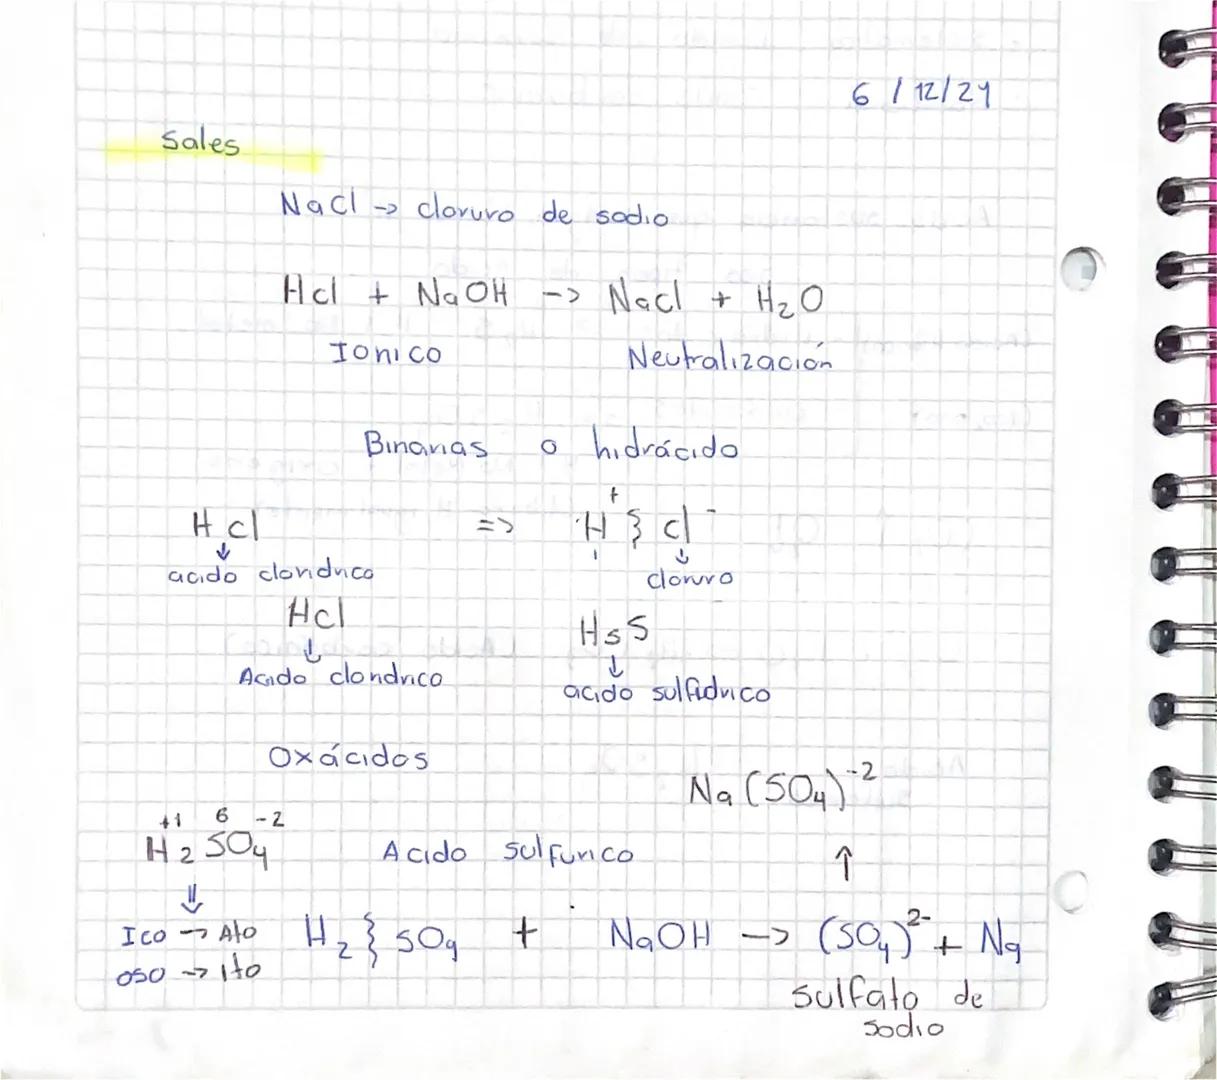 6 / 12/24
Sales
NaCl → cloruro de sodio
Hcl + NaOH -> Nacl + H₂O
Ionico Neutralización
Binarias o hidrácido
H cl => H⁺ } cl⁻
acido cloridrico cloruro
Hcl H₅S
Acido cloridrico acido sulfidrico
Oxácidos
Na (SO₄)⁻²
+1 6 -2
H₂SO₄ Acido sulfurico
Ico → Ato H₂ } SO₄ + NaOH -> (SO₄)²⁻ + Na
oso → Ito
sulfato de
sodio